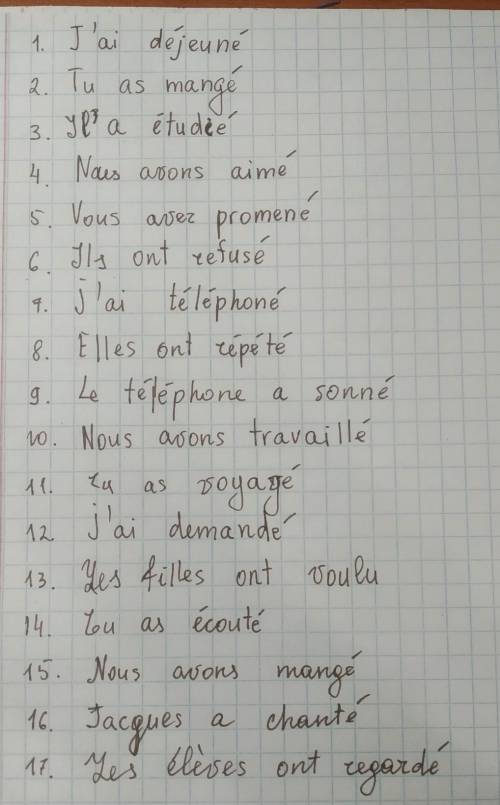 1. J'ai déjeuné
2. Tu as mangé
3. Il a étudié
4. Nous avons aimé
5. Vous avez promené
6. Ils ont refusé
7. J'ai téléphoné
8. Elles ont répété
9. Le téléphone a sonné
10. Nous avons travaillé
11. Tu as voyagé
12. J'ai demandé
13. Les filles ont voulu
14. Tu as écouté
15. Nous avons mangé
16. Jacques a chanté
17. Les élèves ont regardé